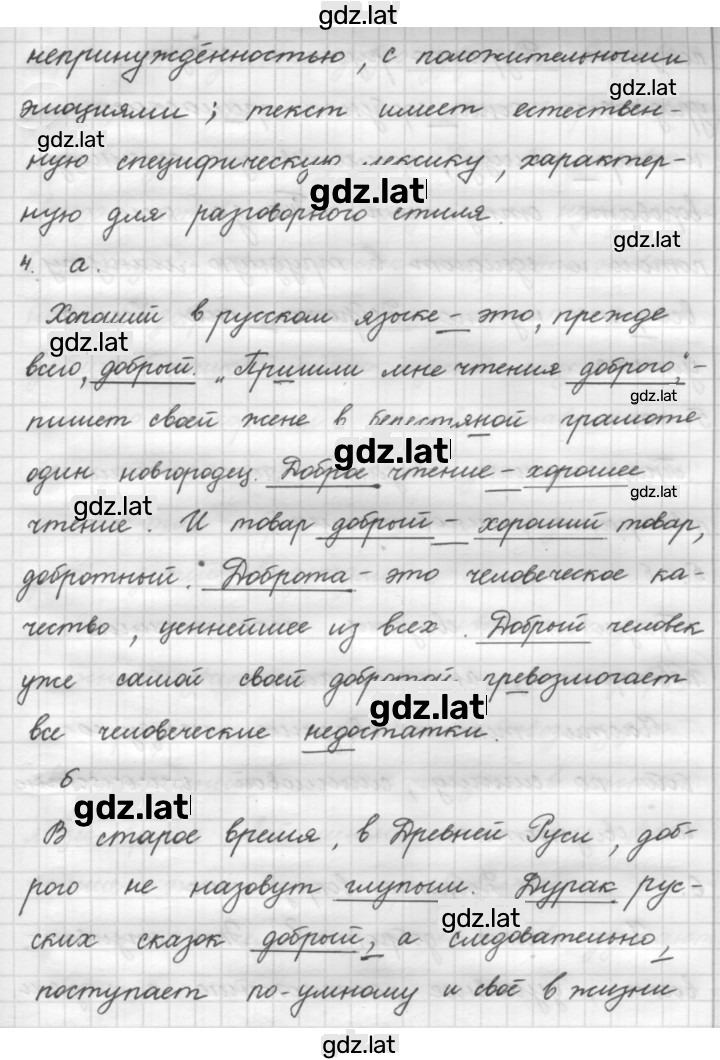 gdz.lat
непринуждённостью, с положительными
gdz.lat
эмоциями; текст имеет естествен-
gdz.lat
ную специфическую лексику, характер-
gdz.lat
ную для разговорного стиля.
gdz.lat
4. а.
Хороший в русском языке – это, прежде
gdz.lat
всего, добрый. „Пришли мне чтения доброго," –
gdz.lat
пишет своей жене в берестяной грамоте
gdz.lat
один новгородец. Доброе чтение – хорошее
gdz.lat
gdz.lat
чтение. И товар добрый – хороший товар,
добротный. Доброта – это человеческое ка-
чество, ценнейшее из всех. Добрый человек
уже самой своей добротой превозмогает
gdz.lat
все человеческие недостатки.
б
gdz.lat
В старое время, в Древней Руси, доб-
рого не назовут глупым. Дурак рус-
gdz.lat
ских сказок добрый, а следовательно,
поступает по-умному и своё в жизни
gdz.lat